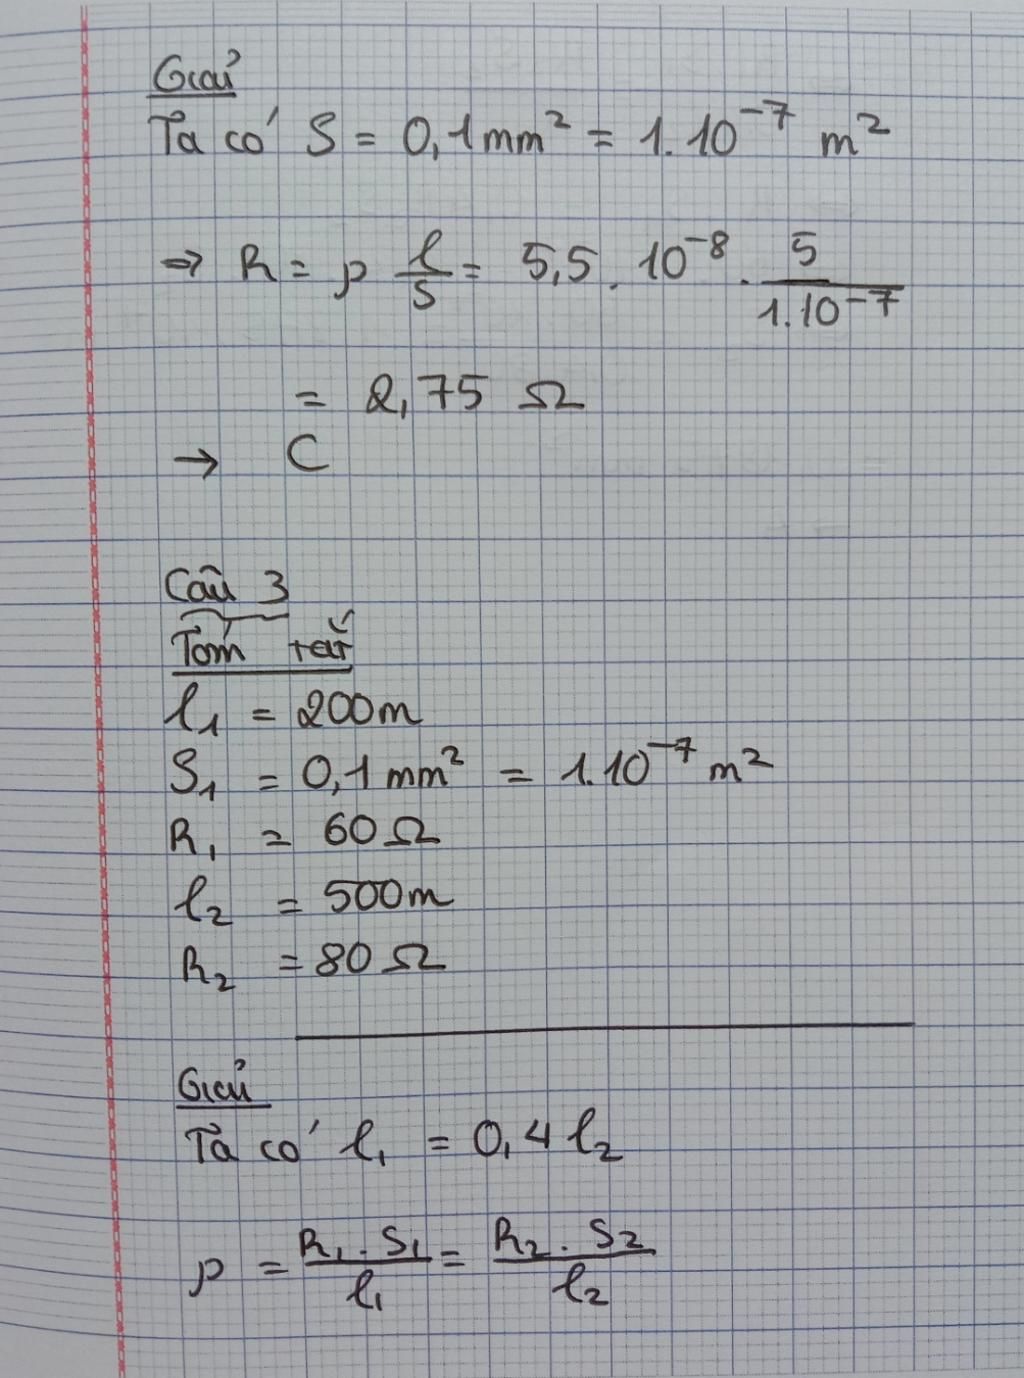 Giải
Ta có S = 0,1mm² = 1.10⁻⁷ m²
⇒ R = ρ l/S = 5,5 . 10⁻⁸ . 5/1.10⁻⁷
= 2,75 Ω
→ C
Câu 3
Tóm tắt
l₁ = 200m
S₁ = 0,1mm² = 1.10⁻⁷ m²
R₁ = 60Ω
l₂ = 500m
R₂ = 80Ω
Giải
Ta có l₁ = 0,4 l₂
ρ = R₁.S₁/l₁ = R₂.S₂/l₂